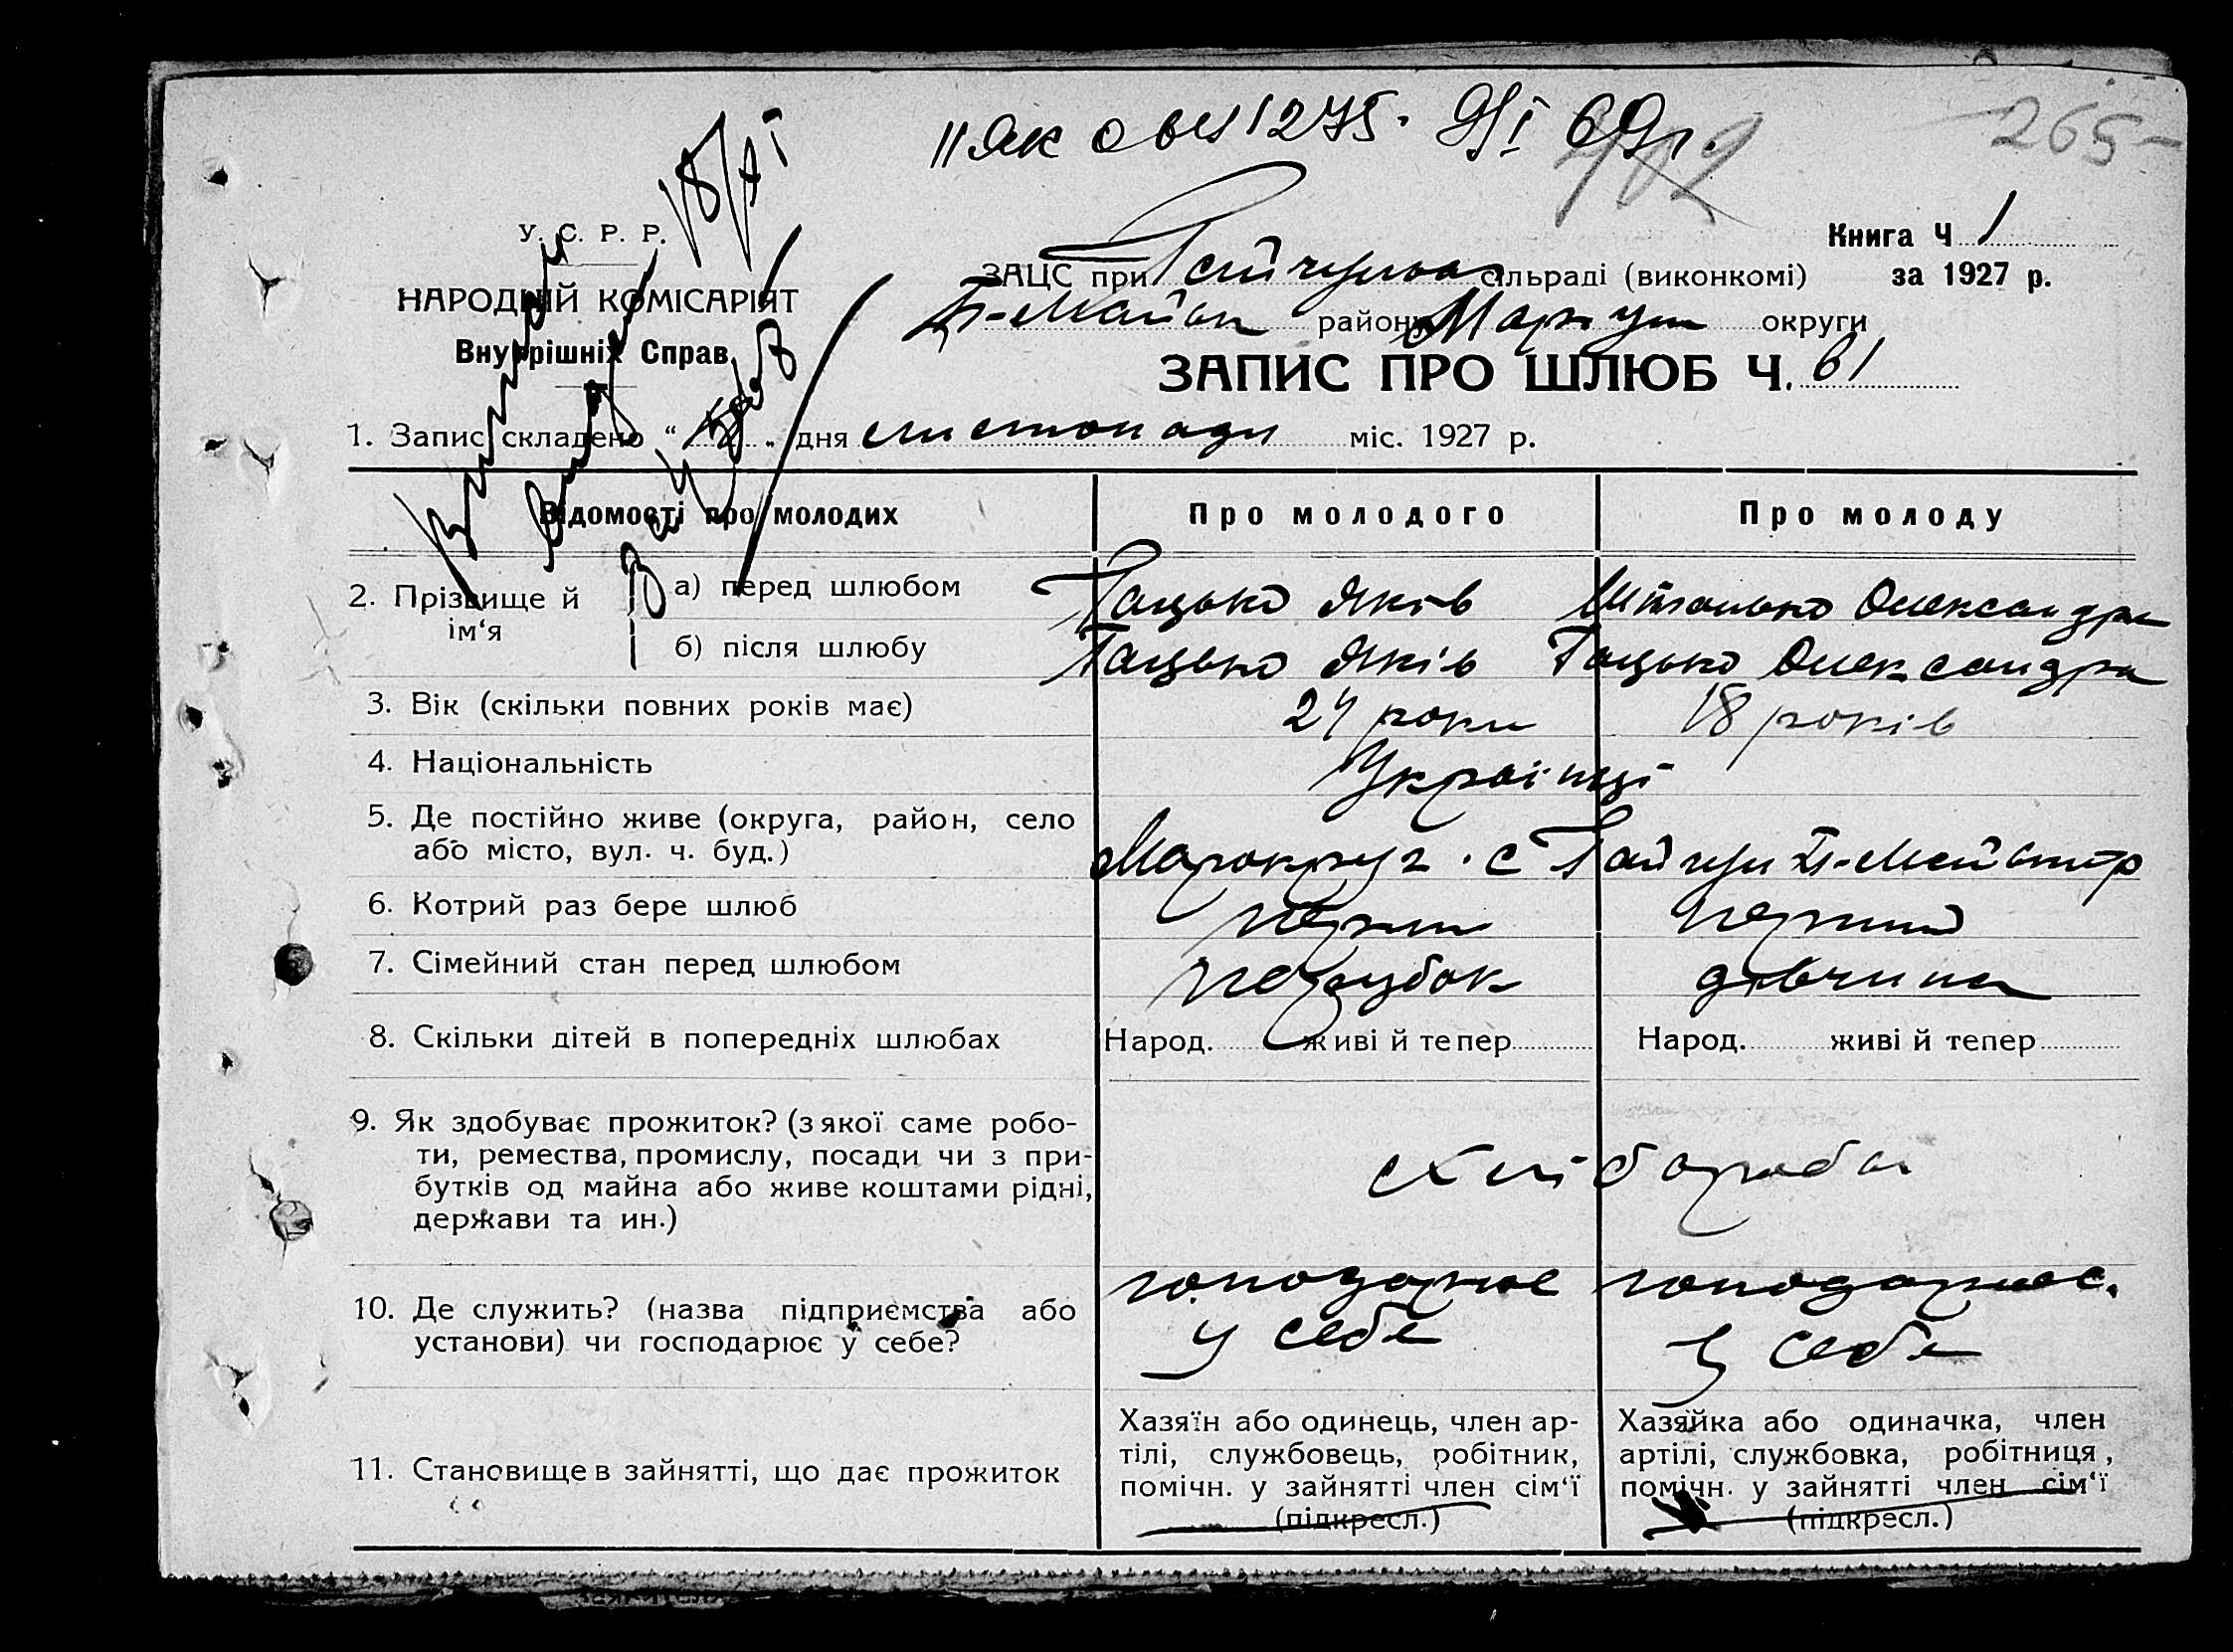 265-
У. С. Р. Р.
НАРОДНІЙ КОМІСАРІЯТ
Внутрішніх Справ
Книга Ч 1
за 1927 р.
ЗАЦС при сільраді (виконкомі)
району округи
ЗАПИС ПРО ШЛЮБ Ч. 61
1. Запис складено " " дня листопада міс. 1927 р.
Відомості про молодих
Про молодого
Про молоду
2. Прізвище й ім‘я
а) перед шлюбом
Гацько Яків
Олександра
б) після шлюбу
Гацько Яків
Гацько Олександра
3. Вік (скільки повних років має)
24 роки
18 років
4. Національність
Українці
5. Де постійно живе (округа, район, село
або місто, вул. ч. буд.)
Марокруг. с Гайчул
6. Котрий раз бере шлюб
перший
перший
7. Сімейний стан перед шлюбом
парубок
дівчина
8. Скільки дітей в попередніх шлюбах
Народ. живі й тепер
Народ. живі й тепер
9. Як здобуває прожиток? (з якої саме робо-
ти, ремества, промислу, посади чи з при-
бутків од майна або живе коштами рідні,
держави та ин.)
хлібороби
10. Де служить? (назва підприємства або
установи) чи господарює у себе?
у себе
у себе
11. Становище в зайнятті, що дає прожиток
Хазяїн або одинець, член ар-
тілі, службовець, робітник,
помічн. у зайнятті член сім‘ї
(підкресл.)
Хазяйка або одиначка, член
артілі, службовка, робітниця,
помічн. у зайнятті член сім‘ї
(підкресл.)